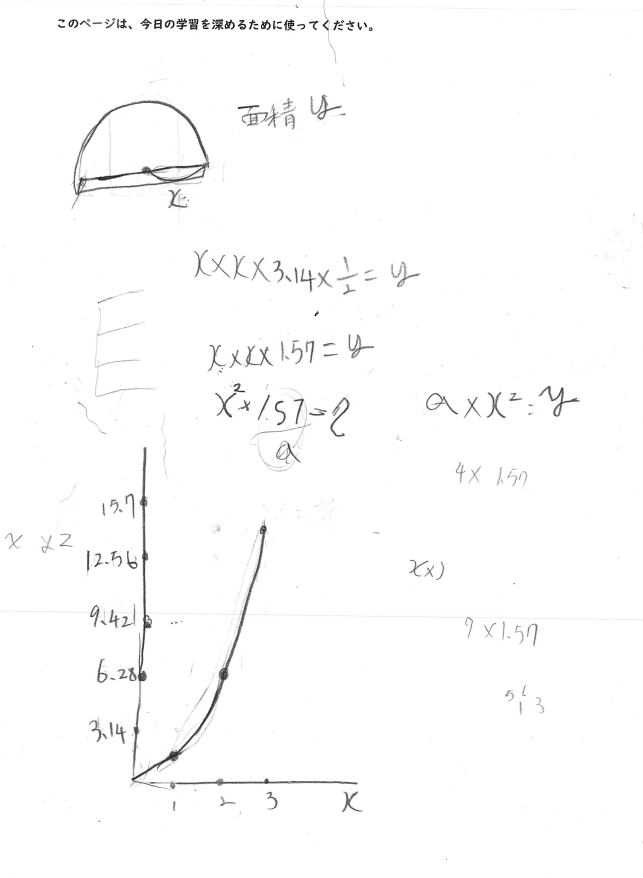 このページは、今日の学習を深めるために使ってください。
面積 y
x
x×x×3.14×1/2=y
x×x×1.57=y
x²×1.57=2
a
a×x²=y
4×1.57
15.7
x y z
12.56
x(x)
9.42
9×1.57
6.28
3.14
1 2 3 x